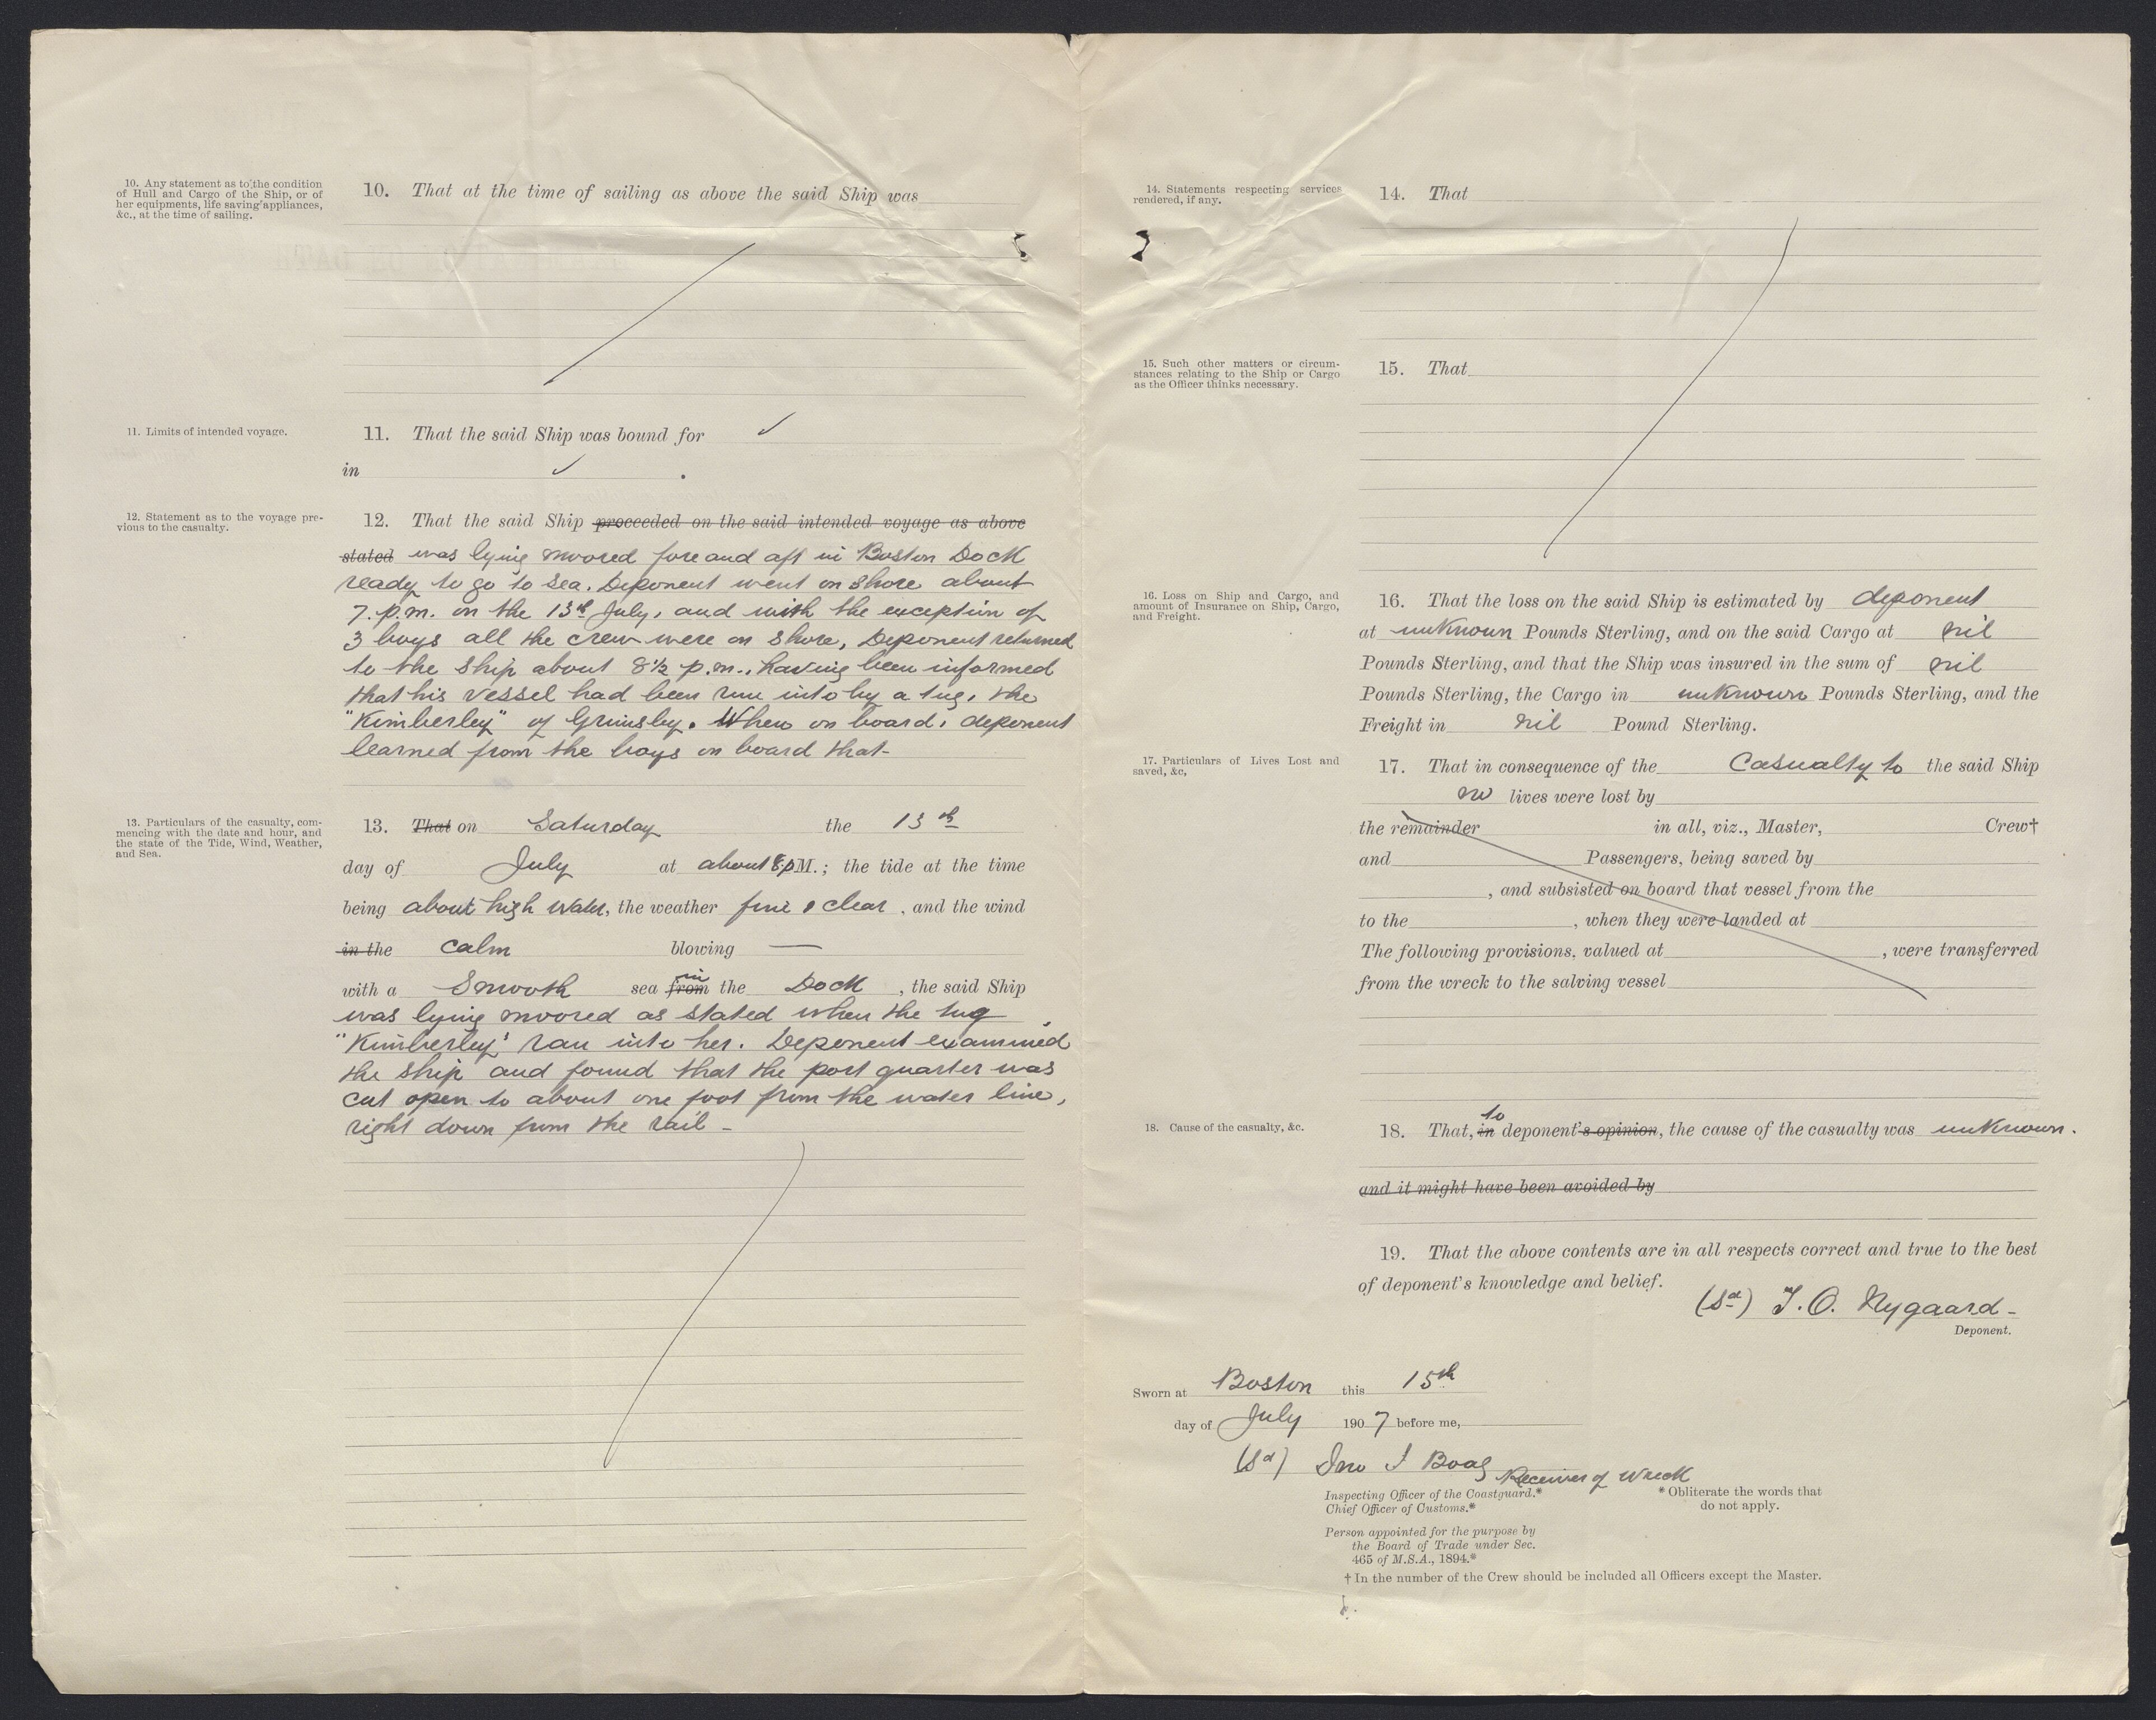 10. Any statement as to the condition
of Hull and Cargo of the Ship, or of
her equipments, life saving appliances,
&c., at the time of sailing.
10. That at the time of sailing as above the said Ship was
11. Limits of intended voyage.
11. That the said Ship was bound for ✓
in ✓ .
12. Statement as to the voyage pre-
vious to the casualty.
12. That the said Ship proceeded on the said intended voyage as above
stated was lying moored fore and aft in Boston Dock
ready to go to sea. Deponent went on shore about
7. p.m. on the 13th July, and with the exception of
3 boys all the crew were on shore, Deponent returned
to the ship about 8½ p.m., having been informed
that his vessel had been run into by a tug, the
"Kimberley" of Grimsby. When on board, deponent
learned from the boys on board that-
13. Particulars of the casualty, com-
mencing with the date and hour, and
the state of the Tide, Wind, Weather,
and Sea.
13. That on Saturday the 13th
day of July at about 8 pM.; the tide at the time
being about high water, the weather fine & clear, and the wind
in the calm blowing —
with a Smooth sea from in the Dock, the said Ship
was lying moored as stated when the tug
"Kimberley" ran into her. Deponent examined
the ship and found that the port quarter was
cut open to about one foot from the water line,
right down from the rail -
14. Statements respecting services
rendered, if any.
14. That
15. Such other matters or circum-
stances relating to the Ship or Cargo
as the Officer thinks necessary.
15. That
16. Loss on Ship and Cargo, and
amount of Insurance on Ship, Cargo,
and Freight.
16. That the loss on the said Ship is estimated by deponent
at unknown Pounds Sterling, and on the said Cargo at nil
Pounds Sterling, and that the Ship was insured in the sum of nil
Pounds Sterling, the Cargo in unknown Pounds Sterling, and the
Freight in nil Pound Sterling.
17. Particulars of Lives Lost and
saved, &c,
17. That in consequence of the Casualty to the said Ship
no lives were lost by
the remainder in all, viz., Master, Crew†
and Passengers, being saved by
, and subsisted on board that vessel from the
to the , when they were landed at
The following provisions, valued at , were transferred
from the wreck to the salving vessel
18. Cause of the casualty, &c.
18. That, in to deponent's opinion, the cause of the casualty was unknown.
and it might have been avoided by
19. That the above contents are in all respects correct and true to the best
of deponent's knowledge and belief.
(Sd) T. O. Nygaard -
Deponent.
Sworn at Boston this 15th
day of July 1907 before me,
(Sd) Jno J Boag Receiver of Wreck
Inspecting Officer of the Coastguard.*
Chief Officer of Customs.*
* Obliterate the words that
do not apply.
Person appointed for the purpose by
the Board of Trade under Sec.
465 of M.S.A., 1894.*
† In the number of the Crew should be included all Officers except the Master.